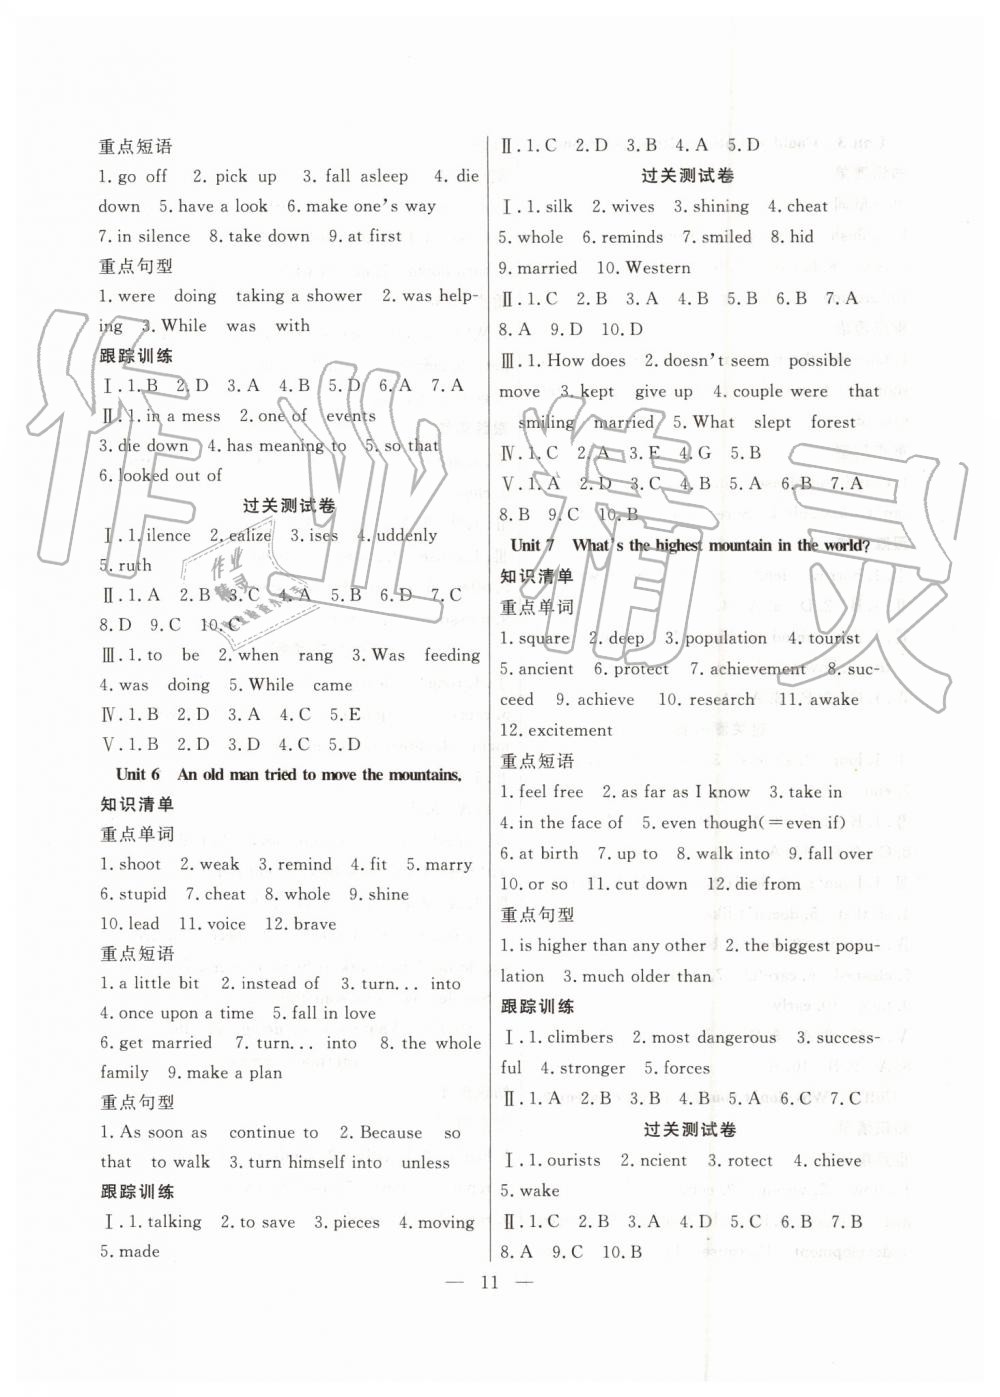 重点短语
1. go off 2. pick up 3. fall asleep 4. die
down 5. have a look 6. make one's way
7. in silence 8. take down 9. at first
重点句型
1. were doing taking a shower 2. was help-
ing 3. While was with
跟踪训练
Ⅰ. 1. B 2. D 3. A 4. B 5. D 6. A 7. A
Ⅱ. 1. in a mess 2. one of events
3. die down 4. has meaning to 5. so that
6. looked out of
过关测试卷
Ⅰ. 1. ilence 2. ealize 3. ises 4. uddenly
5. ruth
Ⅱ. 1. A 2. B 3. C 4. A 5. D 6. D 7. C
8. D 9. C 10. C
Ⅲ. 1. to be 2. when rang 3. Was feeding
4. was doing 5. While came
Ⅳ. 1. B 2. D 3. A 4. C 5. E
Ⅴ. 1. B 2. D 3. B 4. C 5. D
Unit 6 An old man tried to move the mountains.
知识清单
重点单词
1. shoot 2. weak 3. remind 4. fit 5. marry
6. stupid 7. cheat 8. whole 9. shine
10. lead 11. voice 12. brave
重点短语
1. a little bit 2. instead of 3. turn... into
4. once upon a time 5. fall in love
6. get married 7. turn... into 8. the whole
family 9. make a plan
重点句型
1. As soon as continue to 2. Because so
that to walk 3. turn himself into unless
跟踪训练
Ⅰ. 1. talking 2. to save 3. pieces 4. moving
5. made
Ⅱ. 1. C 2. D 3. B 4. A 5. D
过关测试卷
Ⅰ. 1. silk 2. wives 3. shining 4. cheat
5. whole 6. reminds 7. smiled 8. hid
9. married 10. Western
Ⅱ. 1. C 2. B 3. A 4. B 5. B 6. B 7. A
8. A 9. D 10. D
Ⅲ. 1. How does 2. doesn't seem possible
move 3. kept give up 4. couple were that
smiling married 5. What slept forest
Ⅳ. 1. C 2. A 3. E 4. G 5. B
Ⅴ. 1. A 2. D 3. C 4. B 5. A 6. B 7. A
8. B 9. C 10. B
Unit 7 What's the highest mountain in the world?
知识清单
重点单词
1. square 2. deep 3. population 4. tourist
5. ancient 6. protect 7. achievement 8. suc-
ceed 9. achieve 10. research 11. awake
12. excitement
重点短语
1. feel free 2. as far as I know 3. take in
4. in the face of 5. even though(=even if)
6. at birth 7. up to 8. walk into 9. fall over
10. or so 11. cut down 12. die from
重点句型
1. is higher than any other 2. the biggest popu-
lation 3. much older than
跟踪训练
Ⅰ. 1. climbers 2. most dangerous 3. success-
ful 4. stronger 5. forces
Ⅱ. 1. A 2. B 3. C 4. B 5. A 6. C 7. C
过关测试卷
Ⅰ. 1. ourists 2. ncient 3. rotect 4. chieve
5. wake
Ⅱ. 1. C 2. B 3. A 4. D 5. C 6. B 7. B
8. A 9. C 10. B
— 11 —
作业精灵